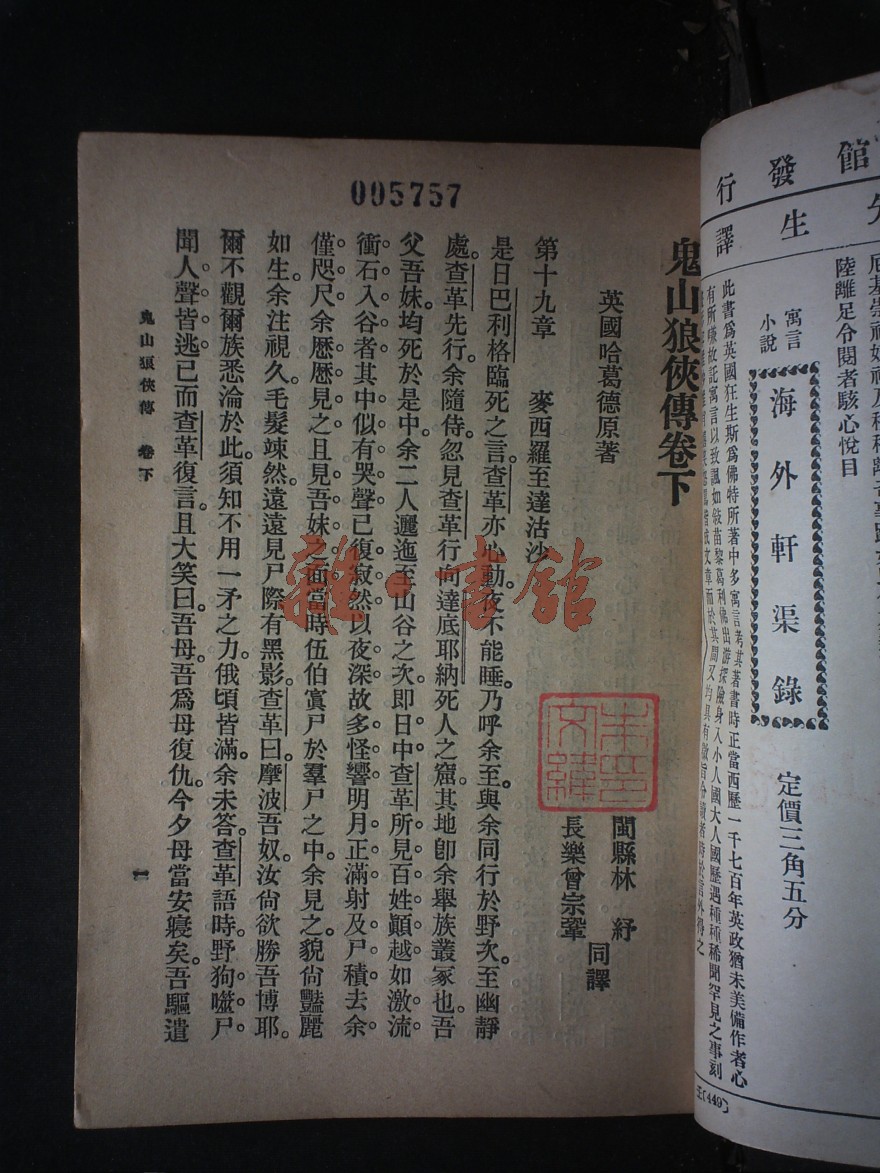 館發行
生譯
陸離足令閱者駭心悅目
寓言
小說
海外軒渠錄
定價三角五分
此書爲英國狂生斯爲佛特所著中多寓言考其著書時正當西歷一千七百年英政猶未美備作者心
有所嫌故託寓言以致諷如敍苗黎葛利佛出游探險身入小人國大人國歷遇種種稀聞罕見之事刻
(449)
005757
鬼山狼俠傳卷下
英國哈葛德原著
閩縣林紓
長樂曾宗鞏
同譯
第十九章 麥西羅至達沽沙
是日巴利格臨死之言。查革亦心動。夜不能睡。乃呼余至。與余同行於野次。至幽靜
處。查革先行。余隨侍。忽見查革行向達底耶納死人之窟。其地卽余舉族叢冢也。吾
父吾妹均死於是中。余二人邐迤至山谷之次。卽日中查革所見百姓顚越如激流
衝石入谷者。其中似有哭聲。已復寂然。以夜深故多怪響。明月正滿。射及尸積。去余
僅咫尺。余歷歷見之。且見吾妹之面。當時伍伯寘尸於羣尸之中。余見之。貌尙豔麗
如生。余注視久。毛髮竦然。遠遠見尸際有黑影。查革曰。摩波吾奴。汝尙欲勝吾博耶。
爾不觀爾族悉淪於此。須知不用一矛之力。俄頃皆滿。余未答。查革語時。野狗噬尸。
聞人聲皆逃。已而查革復言。且大笑曰。吾母。吾爲母復仇。今夕母當安寢矣。吾驅遣
鬼山狼俠傳 卷下
一
雜·書館